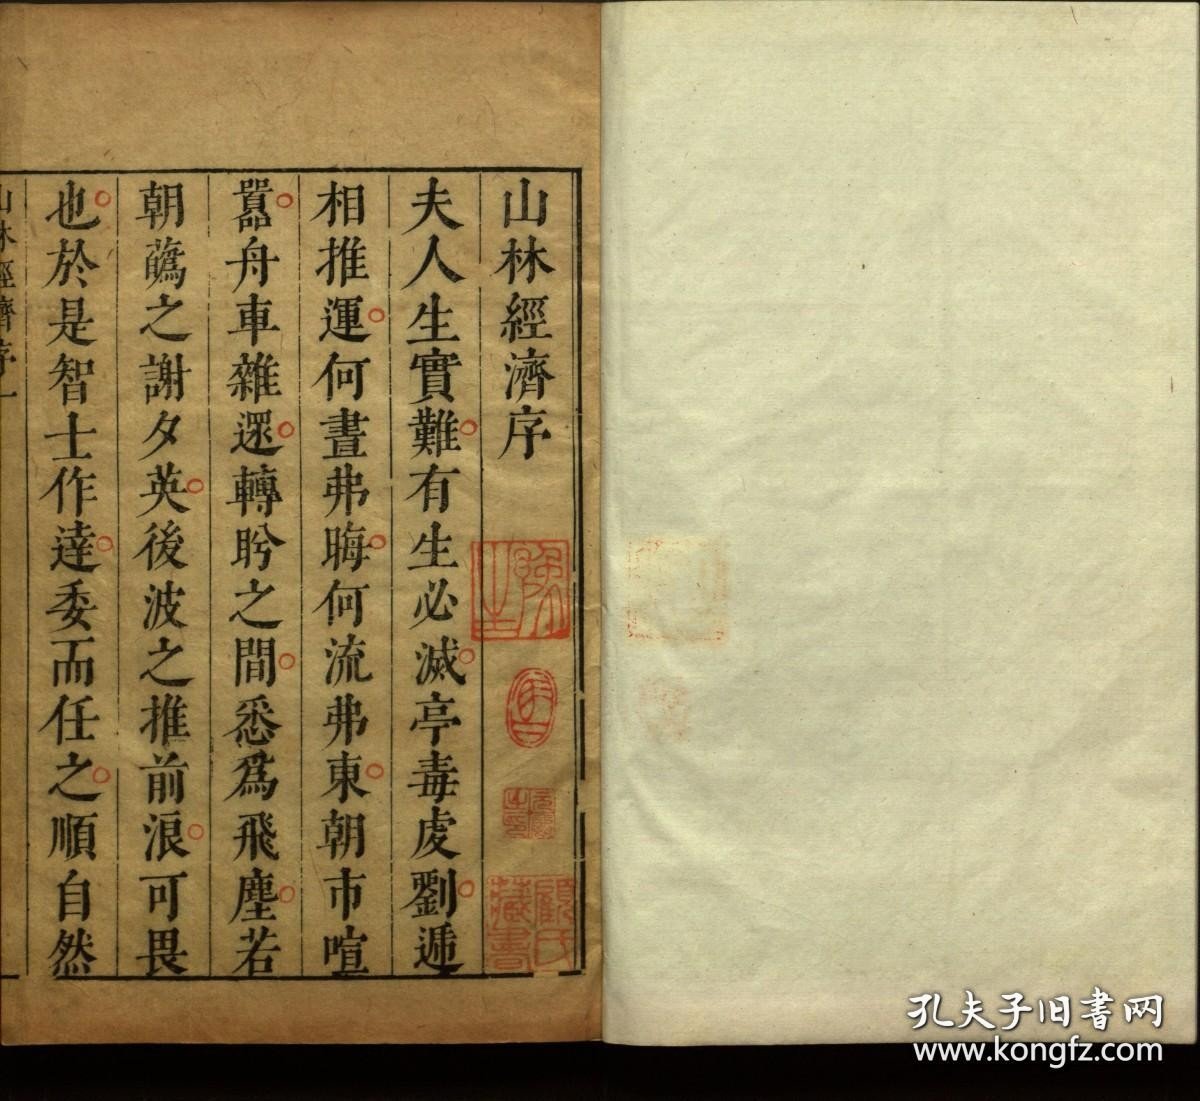 山林經濟序
夫人生實難有生必滅亭毒虔劉遞
相推運何晝弗晦何流弗東朝市喧
囂舟車雜還轉盻之間悉為飛塵若
朝蕣之謝夕英後波之推前浪可畏
也於是智士作達委而任之順自然
山林經濟序一
顧氏藏書
孔夫子旧书网
www.kongfz.com